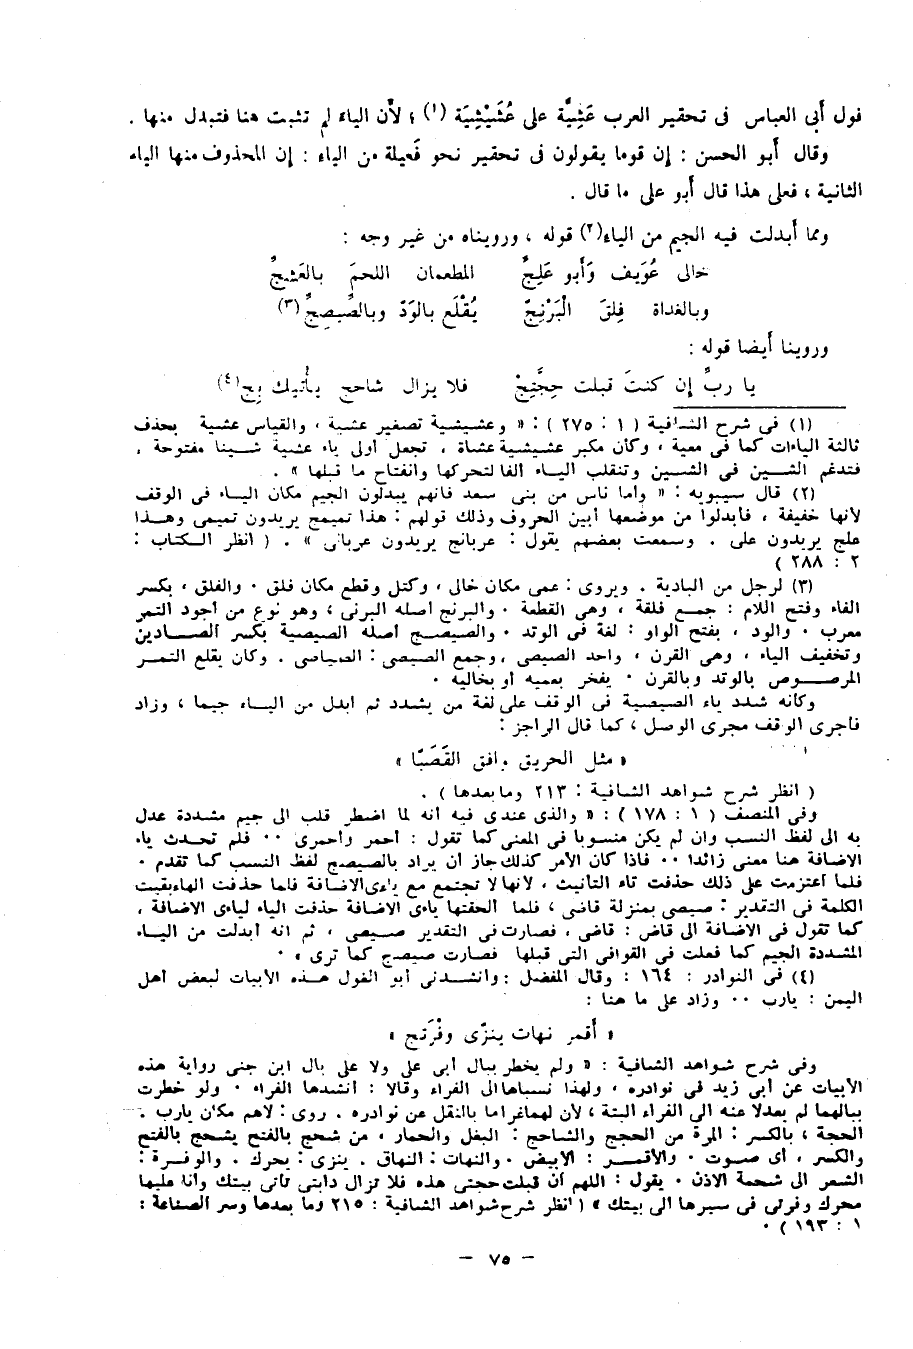 قول أبى العباس فى تحقير العرب عَشِيَّة على عُشَيْشِيَة (١) ؛ لأن الياء لم تثبت هنا فتبدل منها .
وقال أبو الحسن : إن قوما يقولون فى تحقير نحو فَعيلة من الياء : إن المحذوف منها الياء
الثانية ، فعلى هذا قال أبو على ما قال .
ومما أبدلت فيه الجيم من الياء(٢) قوله ، ورويناه من غير وجه :
خالى عُوَيف وَأبو عَلِجٌّ المطعمان اللحمَ بالعَشِجِّ
وبالغداة فِلقَ الْبَرْنِجِّ يُقْلَع بالوَدّ وبالصِّيصِجِّ (٣)
وروينا أيضا قوله :
يا ربِّ إن كنتَ قبلت حِجَّتِجْ فلا يزال شاحج يأتيك بِج(٤)
(١) فى شرح الشافية ( ١ : ٢٧٥ ) : « وعشيشية تصغير عشية ، والقياس عشية بحذف
ثالثة الياءات كما فى معية ، وكأن مكبر عشيشية عشاة ، تجعل أولى ياء عشية شينا مفتوحة ،
فتدغم الشين فى الشين وتنقلب الياء ألفا لتحركها وانفتاح ما قبلها » .
(٢) قال سيبويه : « وأما ناس من بنى سعد فانهم يبدلون الجيم مكان الياء فى الوقف
لانها خفيفة ، فأبدلوا من موضعها أبين الحروف وذلك قولهم : هذا تميمج يريدون تميمى وهذا
علج يريدون على . وسمعت بعضهم يقول : عربانج يريدون عربانى » . ( انظر الكتاب :
٢ : ٢٨٨ )
(٣) لرجل من البادية . ويروى : عمى مكان خالى ، وكتل وقطع مكان فلق . والفلق ، بكسر
الفاء وفتح اللام : جمع فلقة ، وهى القطعة . والبرنج اصله البرنى ، وهو نوع من أجود التمر
معرب . والود ، بفتح الواو : لغة فى الوتد . والصيصج أصله الصيصية بكسر الصادين
وتخفيف الياء ، وهى القرن ، واحد الصيصى ، وجمع الصيصى : الصياصى . وكان يقلع التمر
المرصوص بالوتد وبالقرن . يفخر بعميه أو بخاليه .
وكأنه شدد ياء الصيصية فى الوقف على لغة من يشدد ثم ابدل من الياء جيما ، وزاد
فأجرى الوقف مجرى الوصل ، كما قال الراجز :
« مثل الحريق وافق القَصَبَّا »
( انظر شرح شواهد الشافية : ٢١٣ وما بعدها ) .
وفى المنصف ( ١ : ١٧٨ ) : « والذى عندى فيه أنه لما اضطر قلب الى جيم مشددة عدل
به الى لفظ النسب وان لم يكن منسوبا فى المعنى كما تقول : أحمر وأحمرى .. فلم تحدث ياء
الاضافة هنا معنى زائدا .. فاذا كان الأمر كذلك جاز أن يراد بالصيصج لفظ النسب كما تقدم .
فلما اعتزمت على ذلك حذفت تاء التأنيث ، لأنها لا تجتمع مع ياءى الاضافة فلما حذفت الهاء بقيت
الكلمة فى التقدير : صيصى بمنزلة قاضى ، فلما ألحقتها ياءى الاضافة حذفت الياء لياءى الاضافة ،
كما تقول فى الاضافة الى قاض : قاضى ، فصارت فى التقدير صيصى ، ثم انه أبدلت من الياء
المشددة الجيم كما فعلت فى القوافى التى قبلها فصارت صيصج كما ترى » .
(٤) فى النوادر : ١٦٤ : وقال المفضل : وأنشدنى أبو الغول هذه الأبيات لبعض أهل
اليمن : يارب .. وزاد على ما هنا :
« أقمر نهات ينزّى وفْرَتِج »
وفى شرح شواهد الشافية : « ولم يخطر ببال أبى على ولا على بال ابن جنى رواية هذه
الأبيات عن أبى زيد فى نوادره ، ولهذا نسباها الى الفراء وقالا : أنشدها الفراء . ولو خطرت
ببالهما لم يعدلا عنه الى الفراء البتة ، لأن لهما غراما بالنقل عن نوادره . روى : لاهم مكان يارب .
الحجة ، بالكسر : المرة من الحج والشاحج : البغل والحمار ، من شحج بالفتح يشحج بالفتح
والكسر ، أى صوت . والأقمر : الأبيض . والنهات : النهاق . ينزى : يحرك . والوفرة :
الشعر الى شحمة الأذن . يقول : اللهم أن قبلت حجتى هذه فلا تزال دابتى تأتى بيتك وأنا عليها
محرك وفرتى فى سيرها الى بيتك » ( انظر شرح شواهد الشافية : ٢١٥ وما بعدها وسر الصناعة :
١ : ١٩٣ ) .
– ٧٥ –